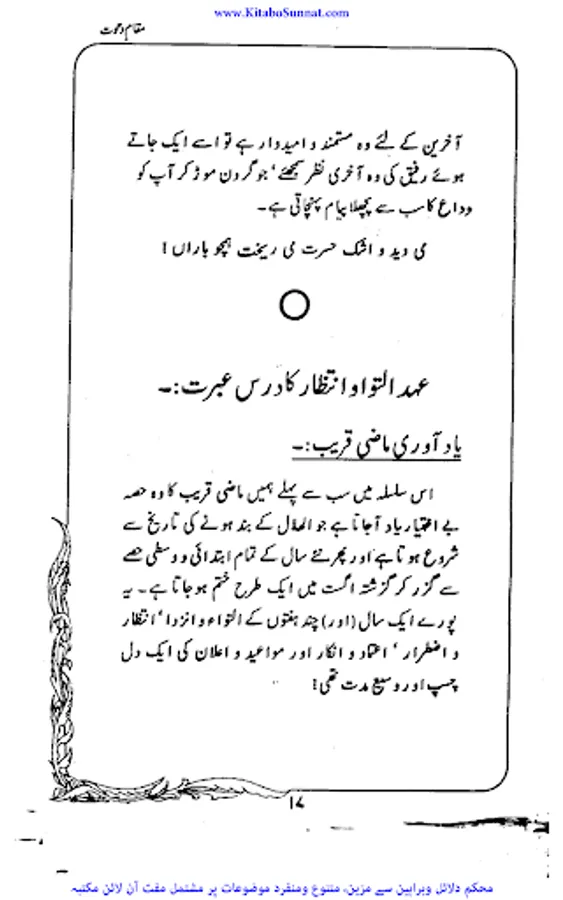 www.KitaboSunnat.com
مقام دعوت
آخرین کے لئے وہ مستمند و امیدوار ہے تو اسے ایک جاتے
ہوئے رفیق کی وہ آخری نظر سمجھئے' جو گردن موڑ کر آپ کو
وداع کا سب سے پچھلا پیام پہنچاتی ہے۔
می دید و اشک حسرت می ریخت ہمچو باراں!
عہد التوا و انتظار کا درس عبرت:۔
یاد آوری ماضی قریب:۔
اس سلسلہ میں سب سے پہلے ہمیں ماضی قریب کا وہ حصہ
بے اختیار یاد آجاتا ہے جو الہلال کے بند ہونے کی تاریخ سے
شروع ہوتا ہے اور پھر نئے سال کے تمام ابتدائی و وسطی حصے
سے گزر کر گزشتہ اگست میں ایک طرح ختم ہو جاتا ہے۔ یہ
پورے ایک سال (اور) چند ہفتوں کے التواء و انزوا' انتظار
و اضطرار' اعتماد و انکار اور مواعید و اعلان کی ایک دل
چسپ اور وسیع مدت تھی!
۱۷
محکم دلائل وبراہین سے مزین، متنوع ومنفرد موضوعات پر مشتمل مفت آن لائن مکتبہ